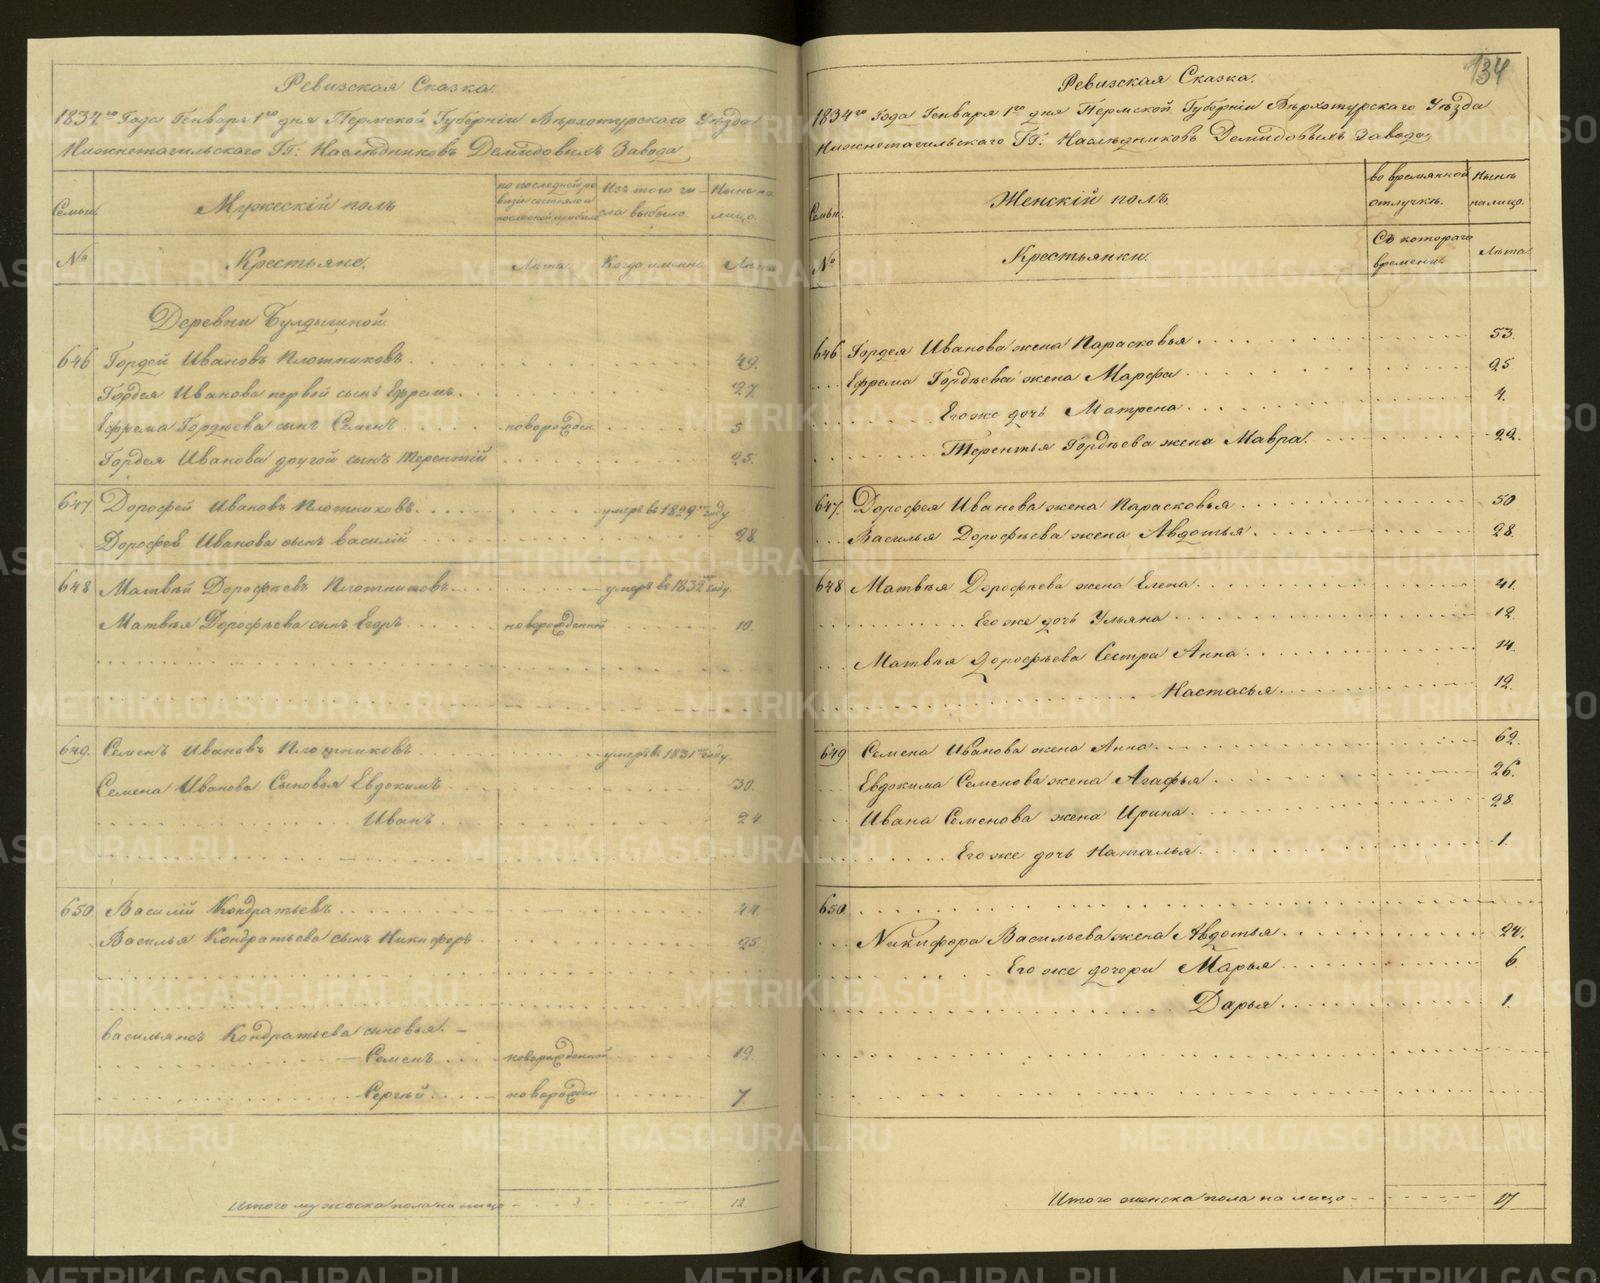 Ревизская Сказка.
1834го Года Генваря 1го дня Пермской Губерніи Верхотурскаго Уѣзда
Нижнетагильскаго ГГ: Наслѣдниковъ Демидовыхъ Завода,
Семьи.
Мужескій полъ
по последной ревизіи состояло и после оной прибыло
Изъ того числа выбыло.
Нынѣ на лицо.
№
Крестьяне.
Лѣта
Когда именно
Лѣта
Деревни Булдышной
646 Гордей Ивановъ Плотниковъ . . . 49.
Гордея Иванова первой сынъ Ефремъ. 27.
Ефрема Гордѣева сынъ Семенъ новорожден 5
Гордея Иванова другой сынъ Терентій 25.
647 Дорофей Ивановъ Плотниковъ. умеръ въ 1829м году
Дорофея Иванова сынъ Василій 28
648 Матвѣй Дорофѣевъ Плотниковъ умеръ въ 1832м году.
Матвѣя Дорофѣева сынъ Егоръ новорожденной 10.
649. Семенъ Ивановъ Плотниковъ умеръ въ 1831м году.
Семена Иванова Сыновья Евдокимъ 30.
Иванъ. 24
650. Василій Кондратьевъ 44
Василья Кондратьева сынъ Никифоръ 25
Васильяжъ Кондратьева сыновья. –
Семенъ новорожденной 12.
Сергѣй новорожден 7.
Итого мужеска пола на лицо 12
134
Ревизская Сказка.
1834го Года Генваря 1го дня Пермской Губерніи Верхотурскаго Уѣзда
Нижнетагильскаго ГГ: Наслѣдниковъ Демидовыхъ Завода,
Семьи.
Женскій полъ.
во временной отлучкѣ.
Нынѣ на лицо.
№
Крестьянки.
Съ котораго времени
Лѣта
646 Гордея Иванова жена Парасковья 53.
Ефрема Гордѣева жена Марфа 25
Его же дочь Матрена 4.
Терентья Гордѣева жена Мавра. 22.
647. Дорофея Иванова жена Парасковья 50
Василья Дорофѣева жена Авдотья. 28.
648 Матвѣя Дорофѣева жена Елена. 41.
Его же дочь Ульяна 12.
Матвѣя Дорофѣева Сестра Анна 14.
Настасья 12.
649 Семена Иванова жена Анна 62.
Евдокима Семенова жена Агафья 26.
Ивана Семенова жена Ирина. 28
Его же дочь Наталья 1.
650.
Никифора Васильева жена Авдотья 24.
Его же дочери Марья 6
Дарья 1.
Итого женска пола на лицо 17
METRIKI.GASO-URAL.RU